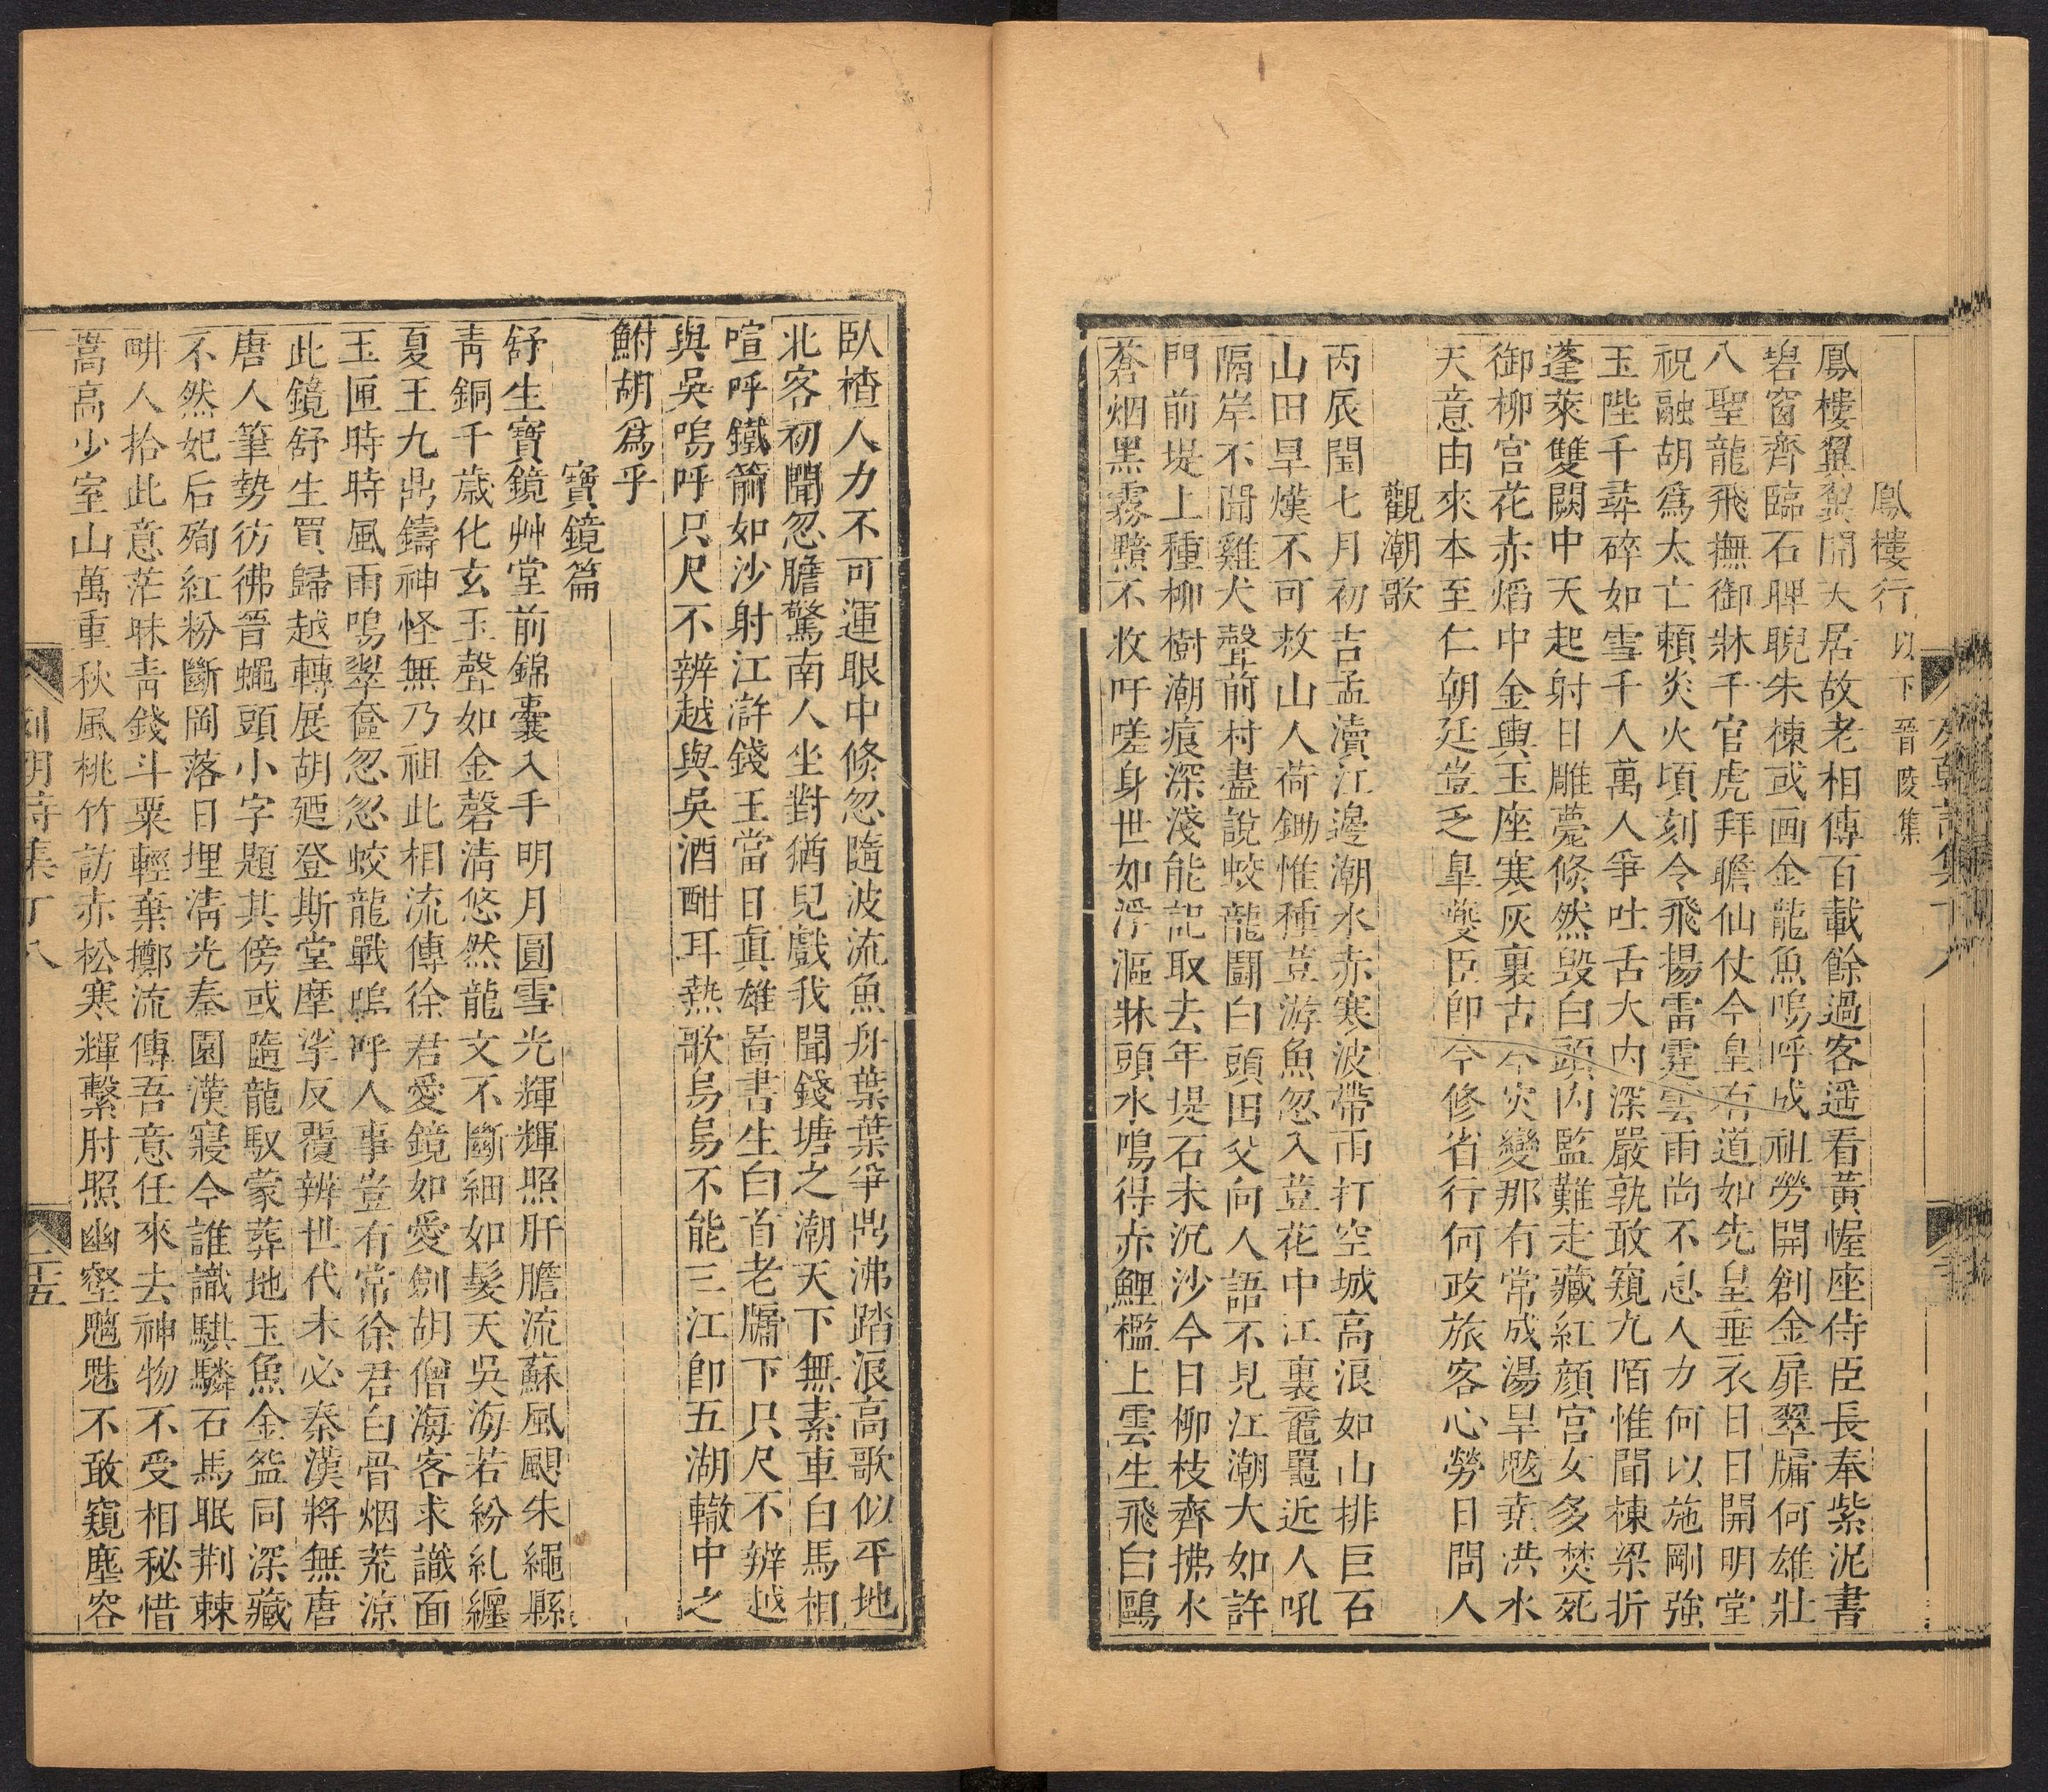 鳳樓行 以下晉陵集
鳳樓翼翼開天居故老相傳百載餘過客遥看黃幄座侍臣長奉紫泥書
碧窗齊臨石睥睨朱棟或画金龍魚嗚呼成祖勞開創金扉翠牖何雄壯
八聖龍飛撫御牀千官虎拜瞻仙仗今皇有道如先皇垂衣日日開明堂
祝融胡爲太亡賴炎火頃刻令飛揚雷霆雲雨尚不息人力何以施剛強
玉陛千尋碎如雪千人萬人爭吐舌大内深嚴孰敢窺九陌惟聞棟梁折
蓬萊雙闕中天起射日雕甍倐然毁白頭内監難走藏紅顔宮女多焚死
御柳宮花赤熖中金輿玉座寒灰裏古今灾變那有常成湯旱魃堯洪水
天意由來本至仁朝廷豈乏臯夔臣卽今修省行何政旅客心勞日問人
觀潮歌
丙辰閏七月初吉孟瀆江邊潮水赤寒波帶雨打空城高浪如山排巨石
山田旱熯不可救山人荷鋤惟種荳游魚忽入荳花中江裏黿鼉近人吼
隔岸不聞雞犬聲前村盡說蛟龍鬭白頭田父向人語不見江潮大如許
門前堤上種柳樹潮痕深淺能記取去年堤石未沉沙今日柳枝齊拂水
蒼烟黑霧黯不收吁嗟身世如浮漚牀頭水鳴得赤鯉檻上雲生飛白鷗
臥楂人力不可運眼中倐忽隨波流魚舟葉葉爭鼎沸踏浪高歌似平地
北客初聞忽膽驚南人坐對猶兒戲我聞錢塘之潮天下無素車白馬相
喧呼鐵箭如沙射江滸錢王當日眞雄啚書生白首老牖下只尺不辨越
與吳嗚呼只尺不辨越與吳酒酣耳熱歌烏烏不能三江卽五湖轍中之
鮒胡爲乎
寶鏡篇
舒生寶鏡艸堂前錦囊入手明月圓雪光輝輝照肝膽流蘇風颭朱繩縣
靑銅千歳化玄玉聲如金磬清悠然龍文不斷細如髮天吳海若紛糺纒
夏王九鼎鑄神怪無乃祖此相流傳徐君愛鏡如愛劍胡僧海客求識面
玉匣時時風雨鳴翠奩忽忽蛟龍戰嗚呼人事豈有常徐君白骨烟荒涼
此鏡舒生買歸越轉展胡廼登斯堂摩挲反覆辨世代未必秦漢將無唐
唐人筆勢彷彿晉蠅頭小字題其傍或隨龍馭蒙葬地玉魚金盌同深藏
不然妃后殉紅粉斷岡落日埋清光秦園漢寢今誰識騏驎石馬眠荆棘
畊人拾此意茫昧靑錢斗粟輕棄擲流傳吾意任來去神物不受相秘惜
嵩高少室山萬重秋風桃竹訪赤松寒輝繫肘照幽壑魑魅不敢窺塵容
列朝詩集丁八
二十五